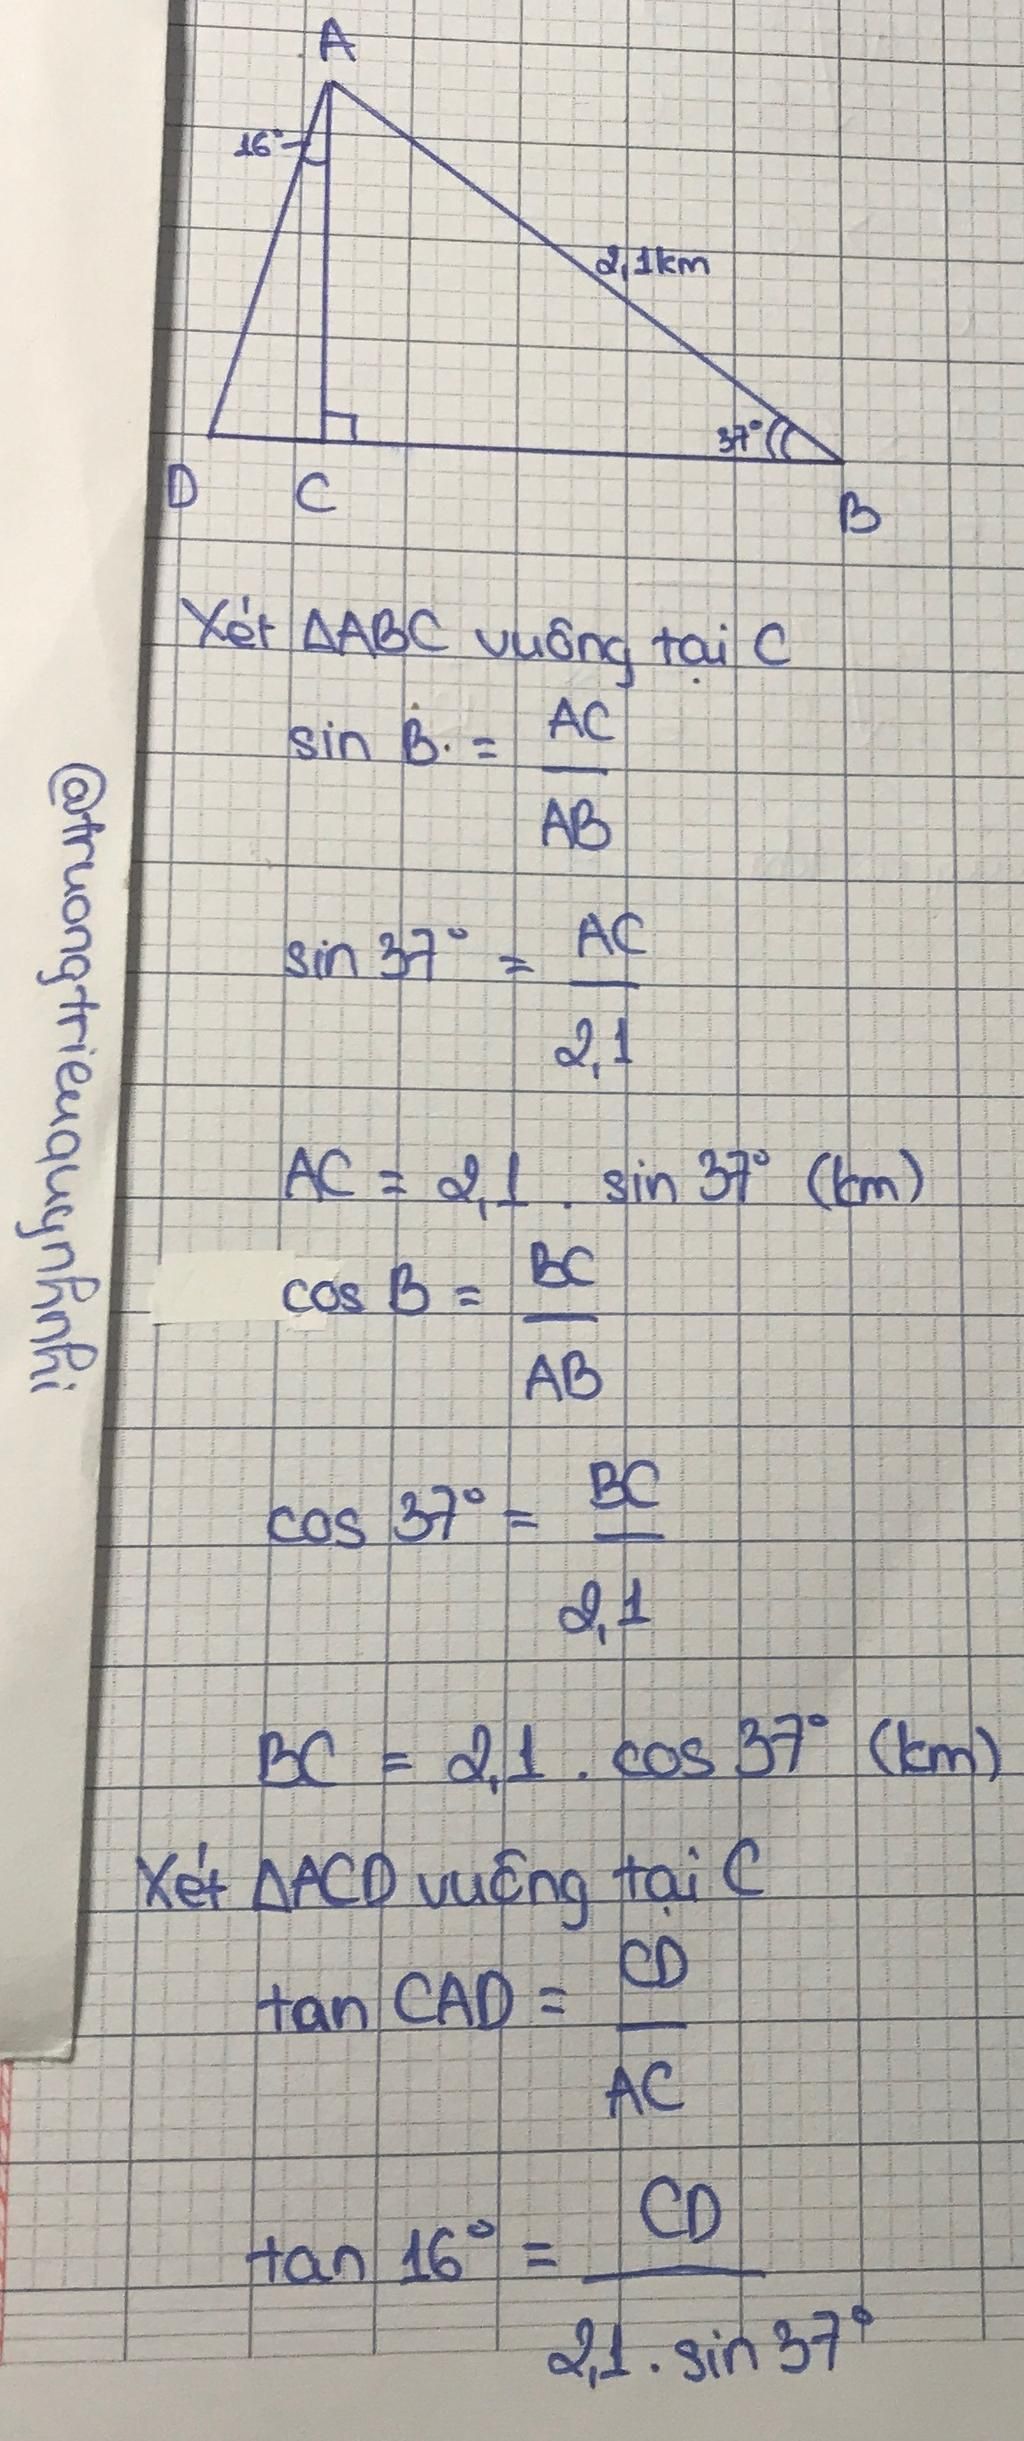 A
16°
2,1km
37°
D C B
Xét ΔABC vuông tại C
sin B = AC
AB
sin 37° = AC
2,1
AC = 2,1 . sin 37° (km)
cos B = BC
AB
cos 37° = BC
2,1
BC = 2,1 . cos 37° (km)
Xét ΔACD vuông tại C
tan CAD = CD
AC
tan 16° = CD
2,1 . sin 37°
@truongtrieuquynhnhi